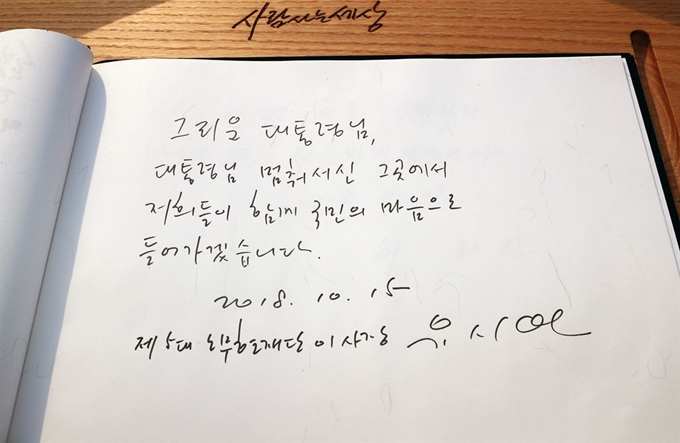 사람사는세상
그리운 대통령님,
대통령님 멈춰서신 그곳에서
저희들이 함께 국민의 마음으로
들어가겠습니다.
2018. 10. 15
제5대 노무현재단 이사장 유시민